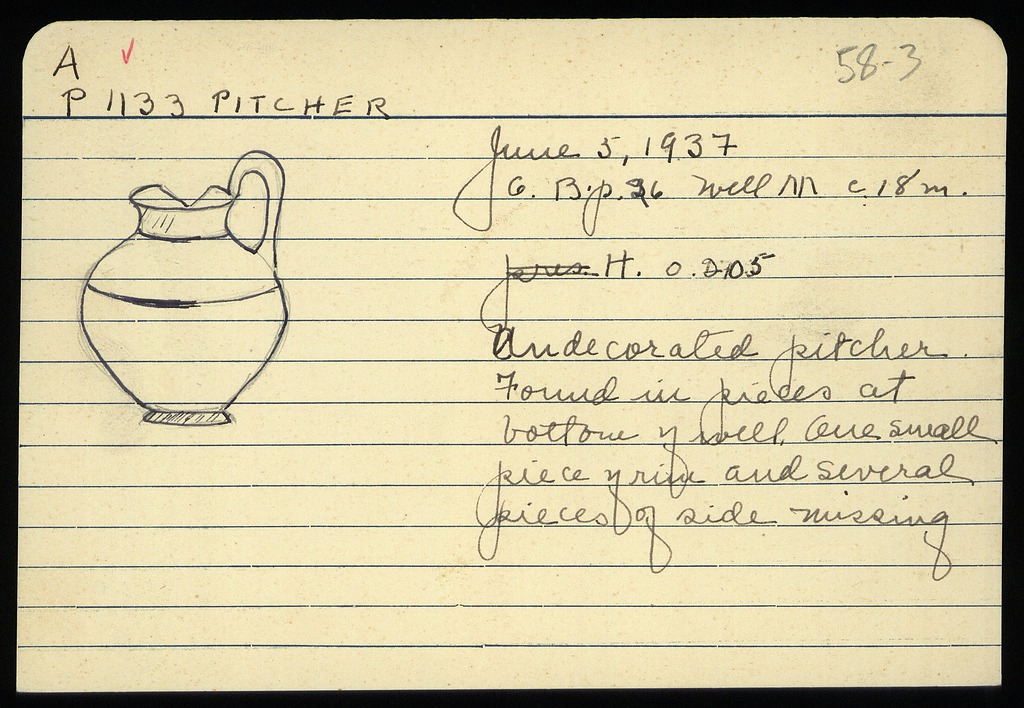 A
58-3
P 1133 PITCHER
June 5, 1937
G. B. p. 36 Well M c. 18 m.
pres. H. 0.205
Undecorated pitcher.
Found in pieces at
bottom of well. One small
piece of rim and several
pieces of side missing